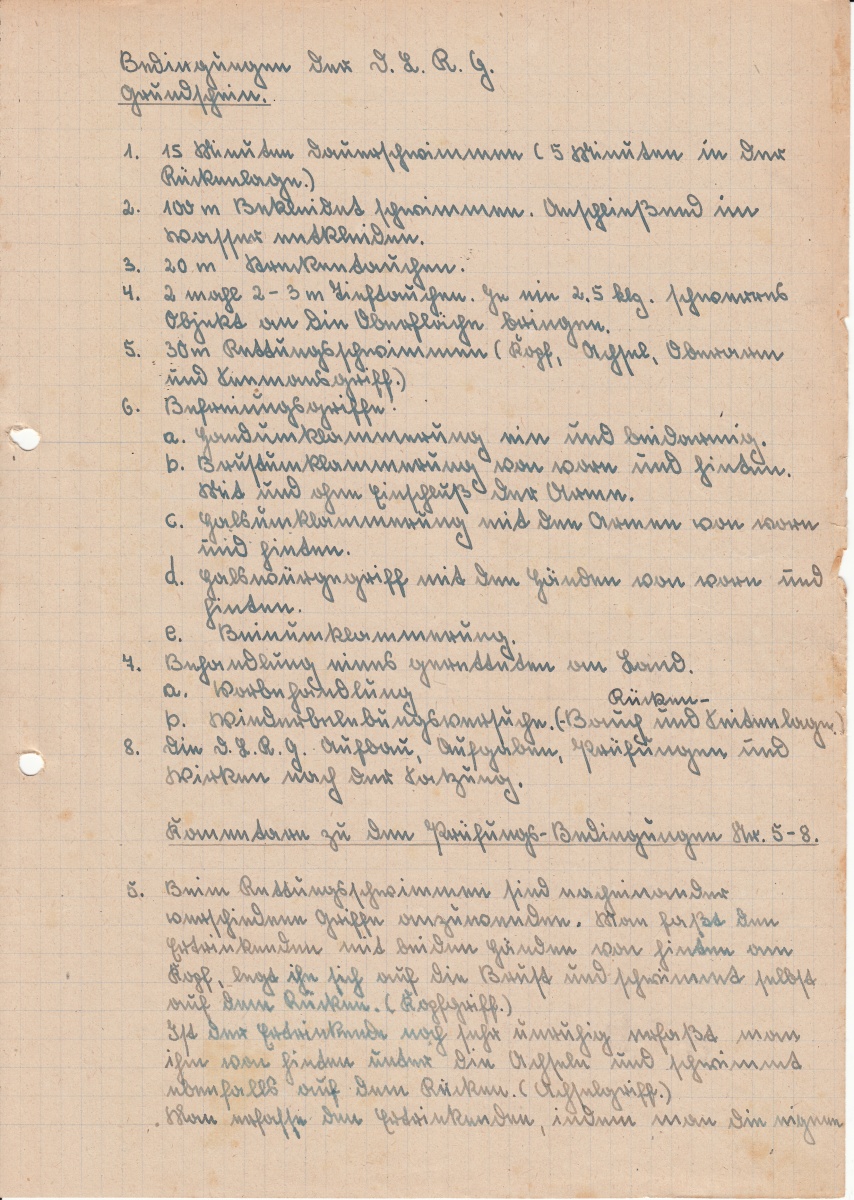 Bedingungen der D. L. R. G.
Grundschein.
1. 15 Minuten Dauerschwimmen ( 5 Minuten in der
Rückenlage.)
2. 100 m Bekleidet schwimmen. Anschließend im
Wasser entkleiden.
3. 20 m Streckentauchen.
4. 2 mahl 2-3 m Tieftauchen. Je ein 2.5 klg. schwerres
Objekt an die Oberfläche bringen.
5. 30m Rettungsschwimmen ( Kopf, Achsel, Oberarm
und Seemansgriff.)
6. Befreiungsgriffe.
a. Handumklammerung ein und beidarmig.
b. Brustumklammerung von vorn und hinten.
Mit und ohne Einschluß der Arme.
c. Halsumklammerung mit den Armen von vorn
und hinten.
d. Halswürgegriff mit den Händen von vorn und
hinten.
e. Beinumklammerung.
7. Behandlung eines geretteten an Land.
a. Vorbehandlung
Rücken-
b. Wiederbelebungsversuche. (-Bauch und Seitenlage.)
8. Die D. L. R. G. Aufbau, Aufgaben, Prüfungen und
Wirken nach der Satzung.
Komentare zu den Prüfungs-Bedingungen Nr. 5-8.
5. Beim Rettungsschwimmen sind nacheinander
verschiedene Griffe anzuwenden. Man faßt den
Ertrinkenden mit beiden Händen von hinten am
Kopf, legt ihn sich auf die Brust und schwimmt selbst
auf dem Rücken. ( Kopfgriff.)
Ist der Ertrinkende noch sehr unruhig erfaßt man
ihn von hinten unter die Achseln und schwimmt
ebenfalls auf dem Rücken. ( Achselgriff.)
Man erfasse den Ertrinkenden, indem man die eigenen